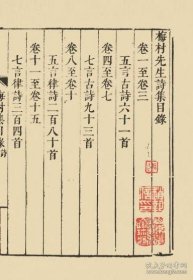 梅村先生詩集目錄
卷一至卷三
五言古詩六十一首
卷四至卷七
七言古詩九十三首
卷八至卷十
五言律詩二百八十首
卷十一至卷十五
七言律詩三百四首